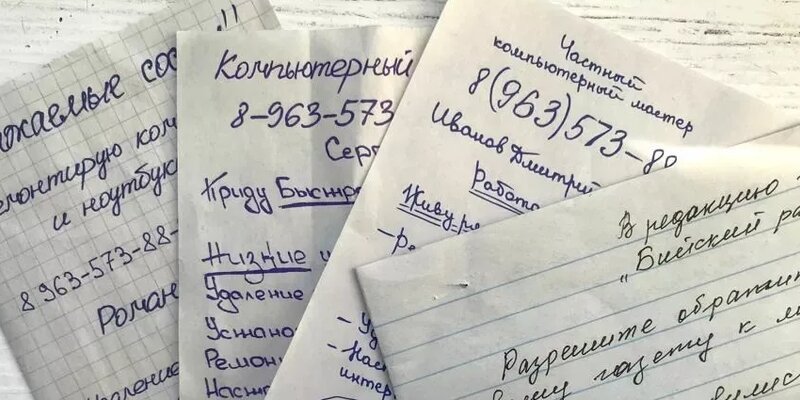 сос !!
емонтирую ком
и ноутбук
8 963-573-88-
Роман
даление
Компьютерный
8-963-573
Серг
Приду Быстр
Низкие
Удаление
Устано
Ремон
Наст
Частный
компьютерный мастер
8(963)573-88
Иванов Дмитрий
Работа
Живу ря
- Уд
- Нас
интер
В редакцию
"Бийский ра
Разрешите обратит
газету к